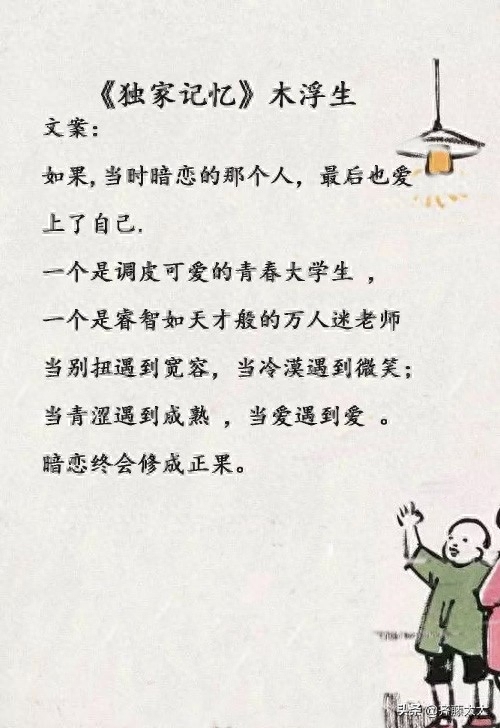 《独家记忆》木浮生
文案：
如果，当时暗恋的那个人，最后也爱
上了自己.
一个是调皮可爱的青春大学生 ，
一个是睿智如天才般的万人迷老师
当别扭遇到宽容，当冷漠遇到微笑；
当青涩遇到成熟 ，当爱遇到爱 。
暗恋终会修成正果。
头条 @